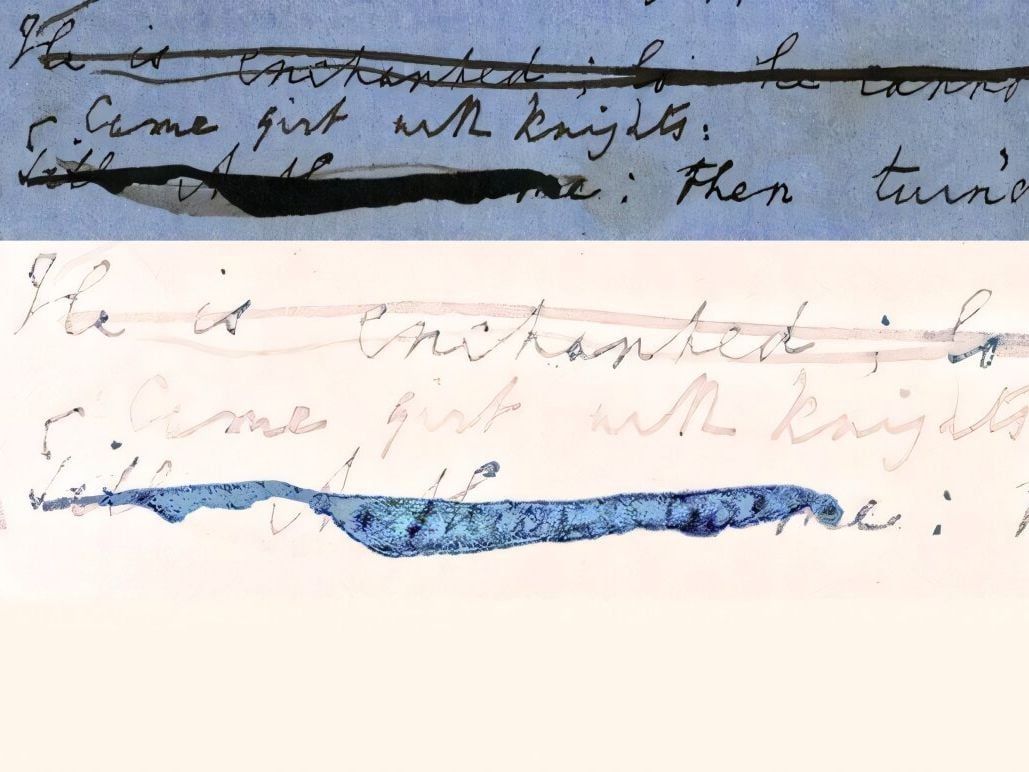 He is enchanted ; lo he canno
Came girt with knights :
With : then turn'd
He is enchanted ; lo
Came girt with knights
With :